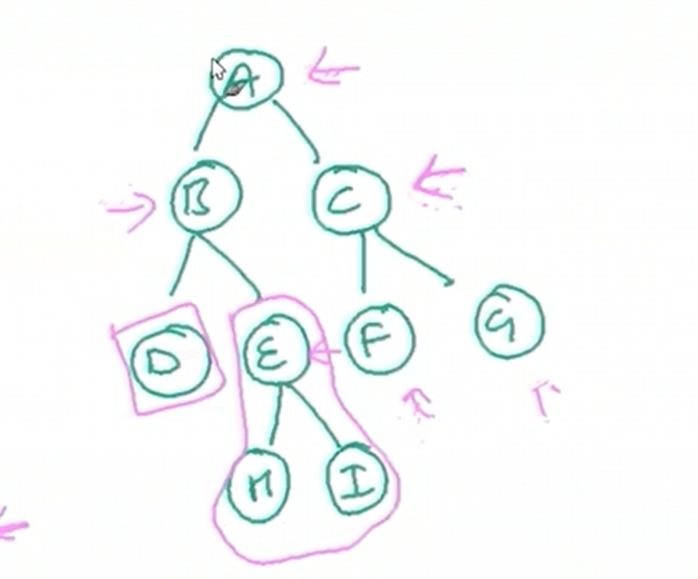 A
B C
D E F G
H I